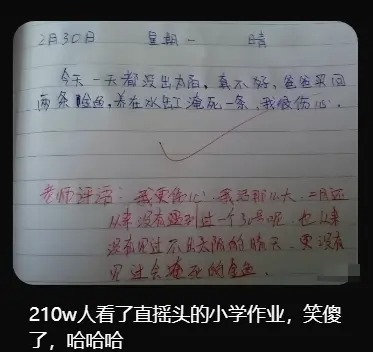 2月30日 星期一 晴
今天一天都没出太阳，真不好，爸爸买回
两条金鱼，养在水缸淹死一条，我很伤心。
老师评语：我更伤心！我活那么大，二月还
从来没有遇到过一个30号呢，也从来
没有见过不出太阳的晴天，更没有
见过会淹死的金鱼。
210w人看了直摇头的小学作业，笑傻
了，哈哈哈